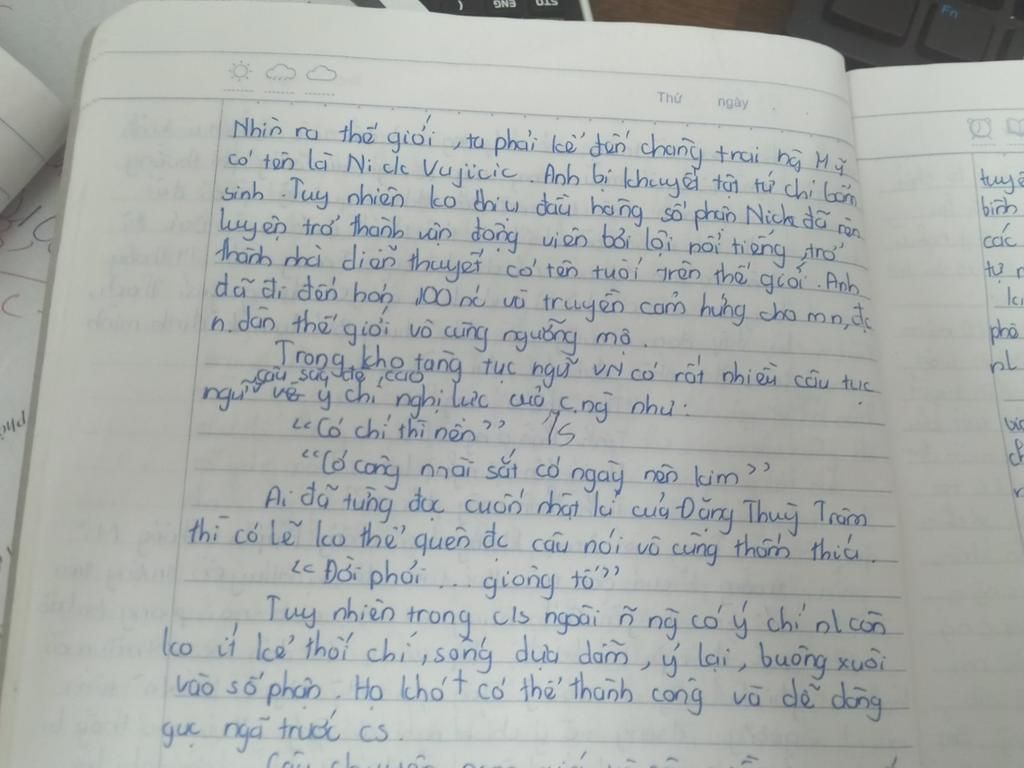 STO ENG (
Fn
Thứ ngày
Nhìn ra thế giới, ta phải kể đến chàng trai ng Mỹ
có tên là Nick Vujicic. Anh bị khuyết tật tứ chi bẩm
sinh. Tuy nhiên ko chịu đầu hàng số phận Nick đã rèn
luyện trở thành vận động viên bơi lội nổi tiếng, trở
thành nhà diễn thuyết có tên tuổi trên thế giới. Anh
đã đi đến hơn 100 nc và truyền cảm hứng cho mn, đc
n.dân thế giới vô cùng ngưỡng mộ.
Trong kho tàng tục ngữ VN có rất nhiều câu tục
ngữ về ý chí nghị lực của c.ng như:
"Có chí thì nên"
"Có công mài sắt có ngày nên kim"
Ai đã từng đọc cuốn nhật kí của Đặng Thuỳ Trâm
thì có lẽ ko thể quên đc câu nói vô cùng thấm thía.
"Đời phải ... giông tố"
Tuy nhiên trong c/s ngoài ~ ng có ý chí nl còn
ko ít kẻ thối chí, sống dựa dẫm, ỷ lại, buông xuôi
vào số phận. Họ khó + có thể thành công và dễ dàng
gục ngã trước cs.
tuyệ
bình
các
phê
nl